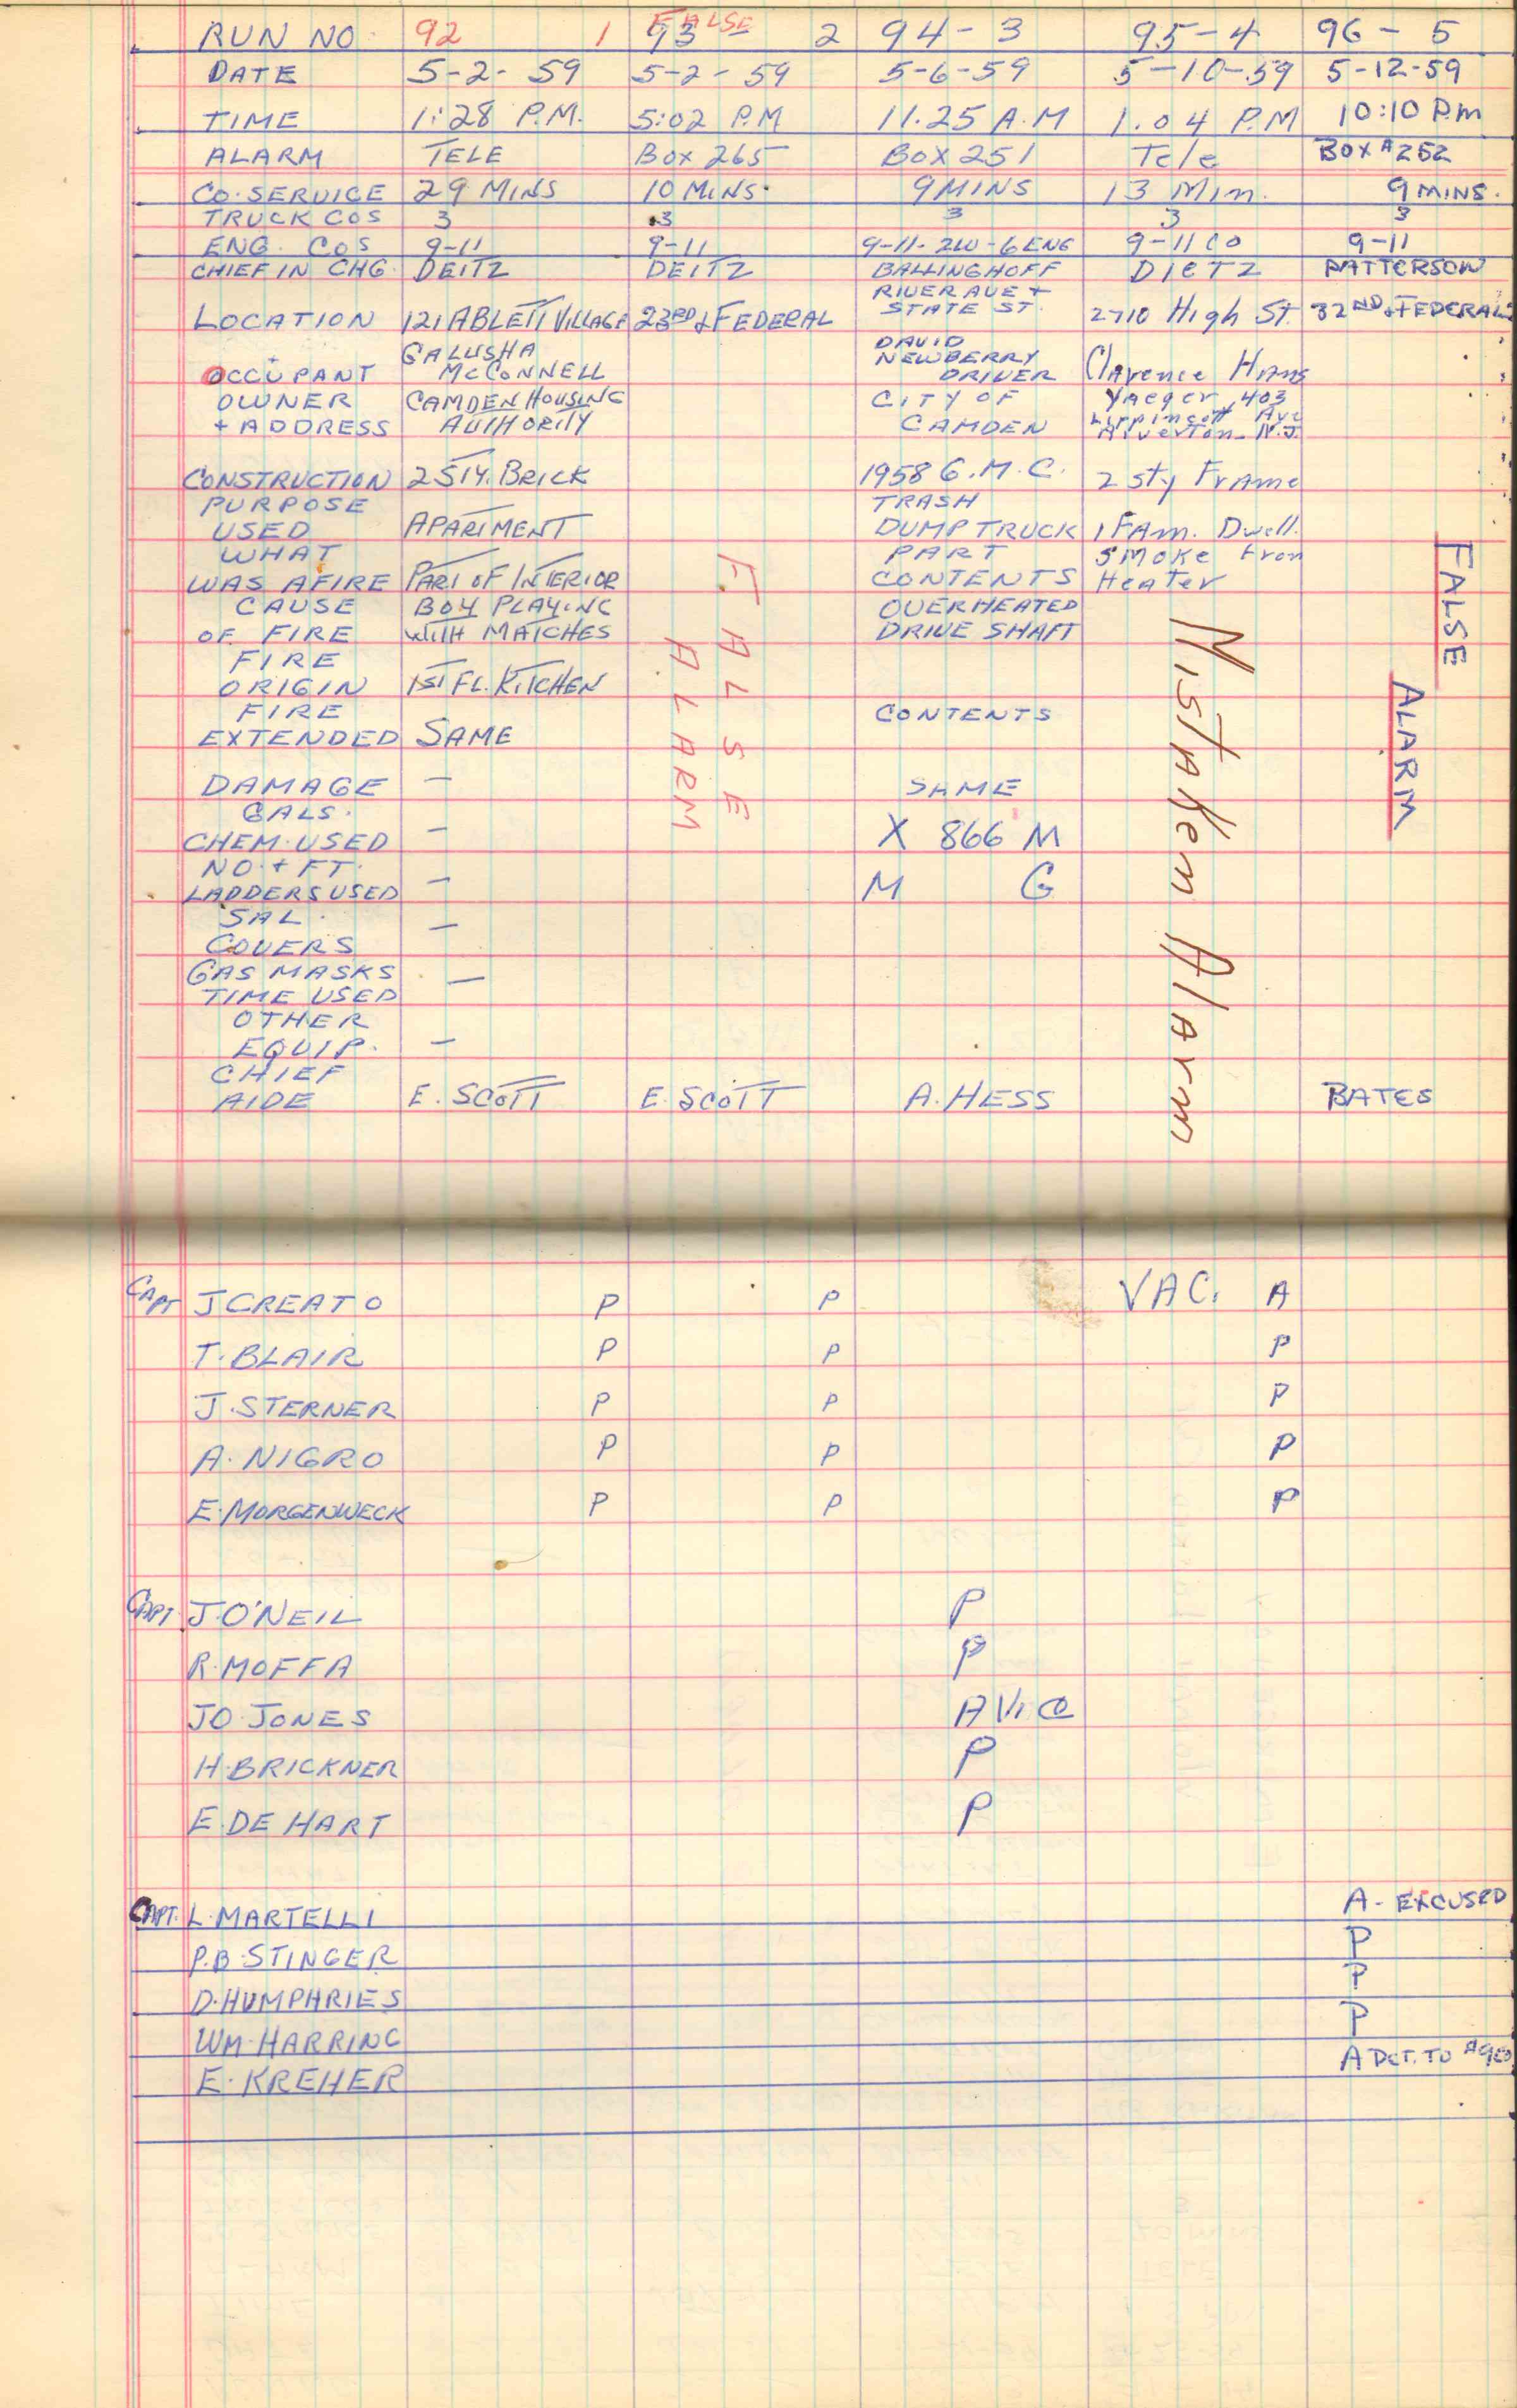 RUN NO. 92 1 93 FALSE 2 94-3 95-4 96-5
DATE 5-2-59 5-2-59 5-6-59 5-10-59 5-12-59
TIME 1:28 P.M. 5:02 P.M 11.25 A.M 1.04 P.M 10:10 P.m
ALARM TELE BOX 265 BOX 251 Tele BOX #252
CO. SERVICE 29 MINS 10 MINS. 9 MINS 13 Min. 9 MINS.
TRUCK COS 3 3 3 3 3
ENG. COS 9-11 9-11 9-11-2W-6ENG 9-11 CO 9-11
CHIEF IN CHG. DEITZ DEITZ BALLINGHOFF DIETZ PATTERSON
RIVER AVE +
LOCATION 121 ABLETT VILLAGE 23RD & FEDERAL STATE ST. 2710 High St. 32ND & FEDERAL
GALUSHA DAVID
+ OCCUPANT McCONNELL NEWBERRY DRIVER Clarence Hans
OWNER CAMDEN HOUSING CITY OF Yaeger, 403
+ ADDRESS AUTHORITY CAMDEN Lippincott Ave
N.J.
CONSTRUCTION 2 STY. BRICK 1958 G.M.C. 2 sty Frame
PURPOSE TRASH
USED APARTMENT DUMP TRUCK 1 FAm. Dwell.
WHAT PART SMOKE from
WAS AFIRE PART OF INTERIOR CONTENTS Heater
CAUSE BOY PLAYING OVERHEATED
OF FIRE WITH MATCHES DRIVE SHAFT
FIRE
ORIGIN 1ST FL. KITCHEN
FIRE CONTENTS
EXTENDED SAME
DAMAGE — SAME
GALS.
CHEM. USED — X 866 M
NO. + FT.
LADDERS USED — M G
SAL.
COVERS —
GAS MASKS
TIME USED —
OTHER
EQUIP. —
CHIEF
AIDE E. SCOTT E. SCOTT A. HESS BATES
FALSE
ALARM
Mistaken Alarm
FALSE
ALARM
CAPT J CREATO P P VAC. A
T. BLAIR P P P
J. STERNER P P P
A. NIGRO P P P
E. MORGENWECK P P P
CAPT. J. O'NEIL P
R. MOFFA P
JO. JONES A
H. BRICKNER P
E. DE HART P
CAPT. L. MARTELLI A - EXCUSED
P.B. STINGER P
D. HUMPHRIES P
WM. HARRING P
E. KREHER A DET. TO #9CO